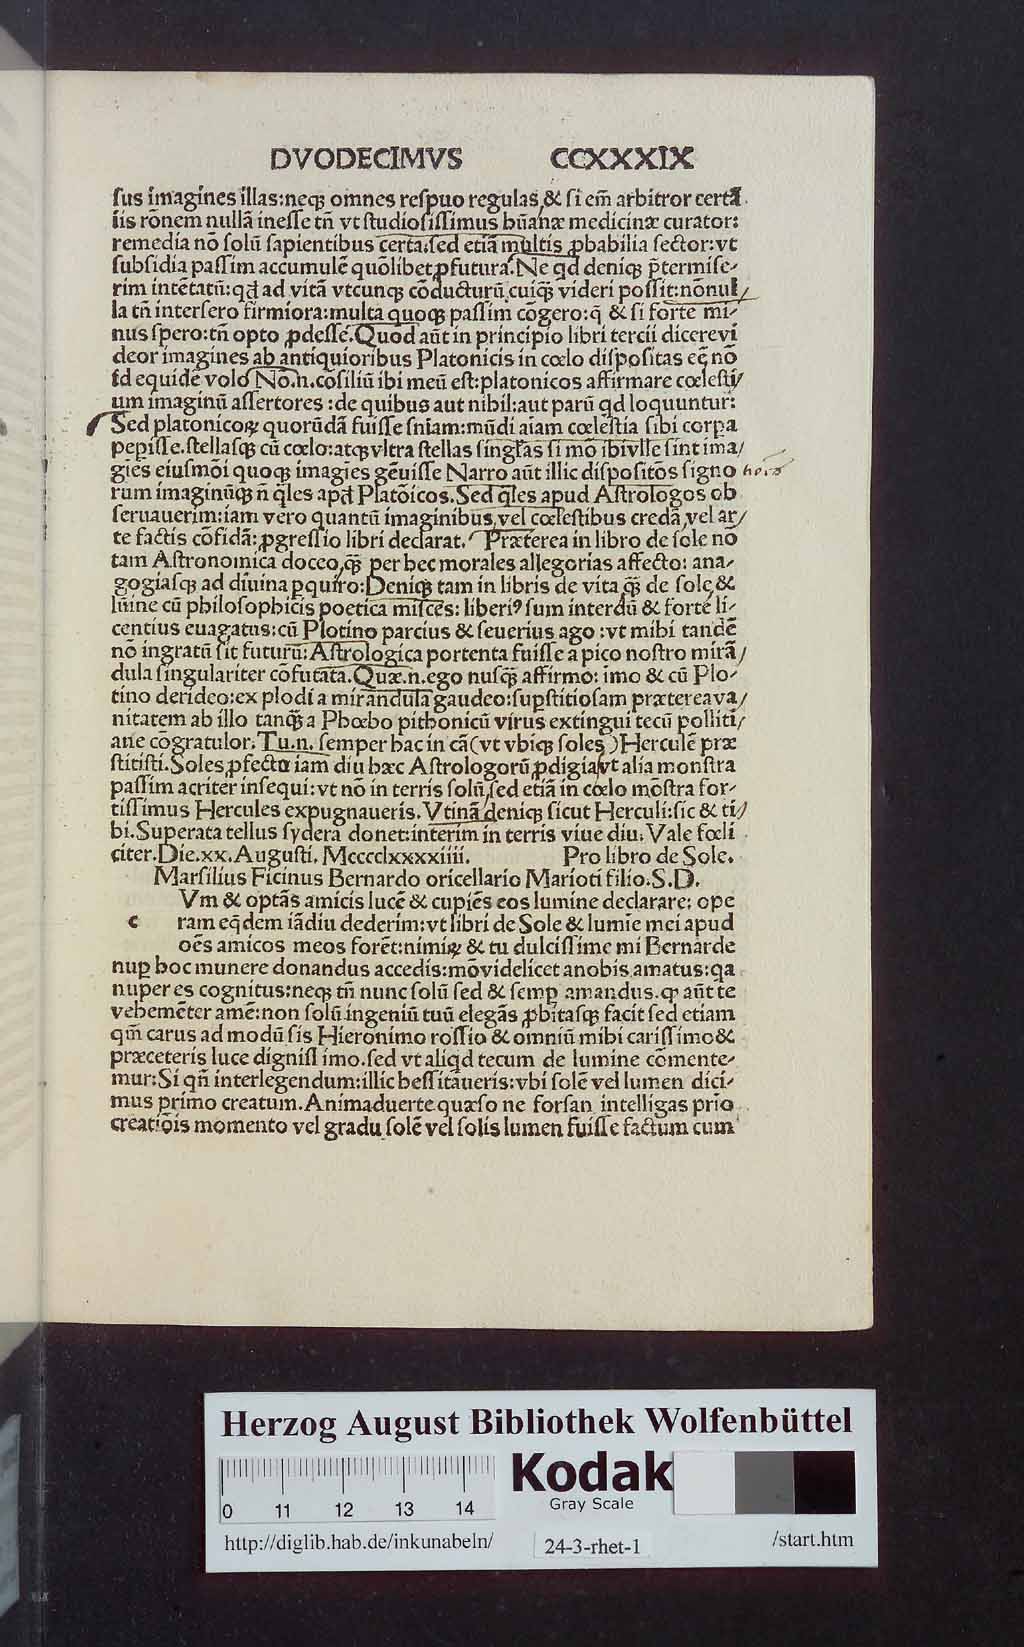 DVODECIMVS CCXXXIX
sus imagines illas:neqȝ omnes respuo regulas,& si em̄ arbitror certā
iis rōnem nullā inesse tn̄ vt studiosissimus hūanæ medicinæ curator:
remedia nō solū sapientibus certa.sed etiā multis ꝓbabilia sector:vt
subsidia passim accumulē quōlibet ꝓfutura. Ne qd deniqȝ p̄termise-
rim intētatū:qd ad vitā vtcunqȝ cōducturū,cuiqȝ videri possit:nōnul/
la tn̄ intersero firmiora:multa quoqȝ passim cōgero:q̄ & si forte mi-
nus spero:tn̄ opto ꝓdesse. Quod aūt in principio libri tercii dicere vi
deor imagines ab antiquioribus Platonicis in cœlo dispositas eq̄ nō
id equidē volo Nō.n.cōsiliū ibi meū est:platonicos affirmare cœlesti/
um imaginū assertores :de quibus aut nihil:aut parū qd loquuntur:
Sed platonicoꝝ quorūdā fuisse sniam:mūdi aīam cœlestia sibi corpa
pepisse.stellasqȝ cū cœlo:atqȝ vltra stellas singl̄as si mō ibi vllę sint ima/
gīes eiusmōi quoqȝ imagīes gēuisse Narro aūt illic dispositōs signo
rum imaginūqȝ n̄ q̄les apd Platōicos. Sed q̄les apud Astrologos ob
seruauerim:iam vero quantū imaginibus,vel cœlestibus credā,vel ar/
te factis cōfidā:ꝓgressio libri declarat. Præterea in libro de sole nō
tam Astronomica doceo,qȝ̄ per hec morales allegorias affecto: ana-
gogiasqȝ ad diuina ꝑquiro:Deniqȝ tam in libris de vita qȝ̄ de sole,&
lūine cū philosophicis poetica miscēs: liberiꝰ sum interdū & forte li-
centius euagatus:cū Plotino parcius & seuerius ago :vt mihi tandē
nō ingratū sit futurū:Astrologica portenta fuisse a pico nostro mirā/
dula singulariter cōfutata. Quæ.n.ego nusqȝ̄ affirmo: imo & cū Plo-
tino derideo:ex plodi a mirandula gaudeo:suꝑstitiosam præterea va/
nitatem ab illo tanqȝ̄ a Phœbo pithonicū virus extingui tecū politi/
ane cōgratulor. Tu.n. semper hac in cā(vt vbiqȝ soles )Herculē præ
stitisti.Soles ꝓfecto iam diu hæc Astrologorū ꝓdigia,vt alia monstra
passim acriter insequi:vt nō in terris solū,sed etiā in cœlo mōstra for-
tissimus Hercules expugnaueris. Vtinā deniqȝ sicut Herculi:sic & ti/
bi.Superata tellus sydera donet:interim in terris viue diu. Vale fœli
citer.Die.xx.Augusti. MccccLxxxxiiii. Pro libro de Sole.
Marsilius Ficinus Bernardo oricellario Marioti filio.S.D.
Vm & optās amicis lucē & cupiēs eos lumine declarare: ope
c ram eq̄dem iādiu dederim:vt libri de Sole & lumīe mei apud
oēs amicos meos forēt:nimiꝝ & tu dulcissime mi Bernarde
nuꝑ hoc munere donandus accedis:mō videlicet a nobis amatus:qa
nuper es cognitus:neqȝ tn̄ nunc solū sed & semꝑ amandus.ꝙ aūt te
vehemēter amē:non solū ingeniū tuū elegās ꝓbitasqȝ facit sed etiam
qm̄ carus ad modū sis Hieronimo rossio & omniū mihi carissimo &
præceteris luce dignissimo.sed vt aliqd tecum de lumine cōmente-
mur:Si qn̄ interlegendum:illic hessitaueris:vbi solē vel lumen dici-
mus primo creatum.Animaduerte quæso ne forsan intelligas prīo
creatiōis momento vel gradu solē vel solis lumen fuisse factum cum
Herzog August Bibliothek Wolfenbüttel
0 11 12 13 14
Kodak
Gray Scale
http://diglib.hab.de/inkunabeln/ 24-3-rhet-1 /start.htm